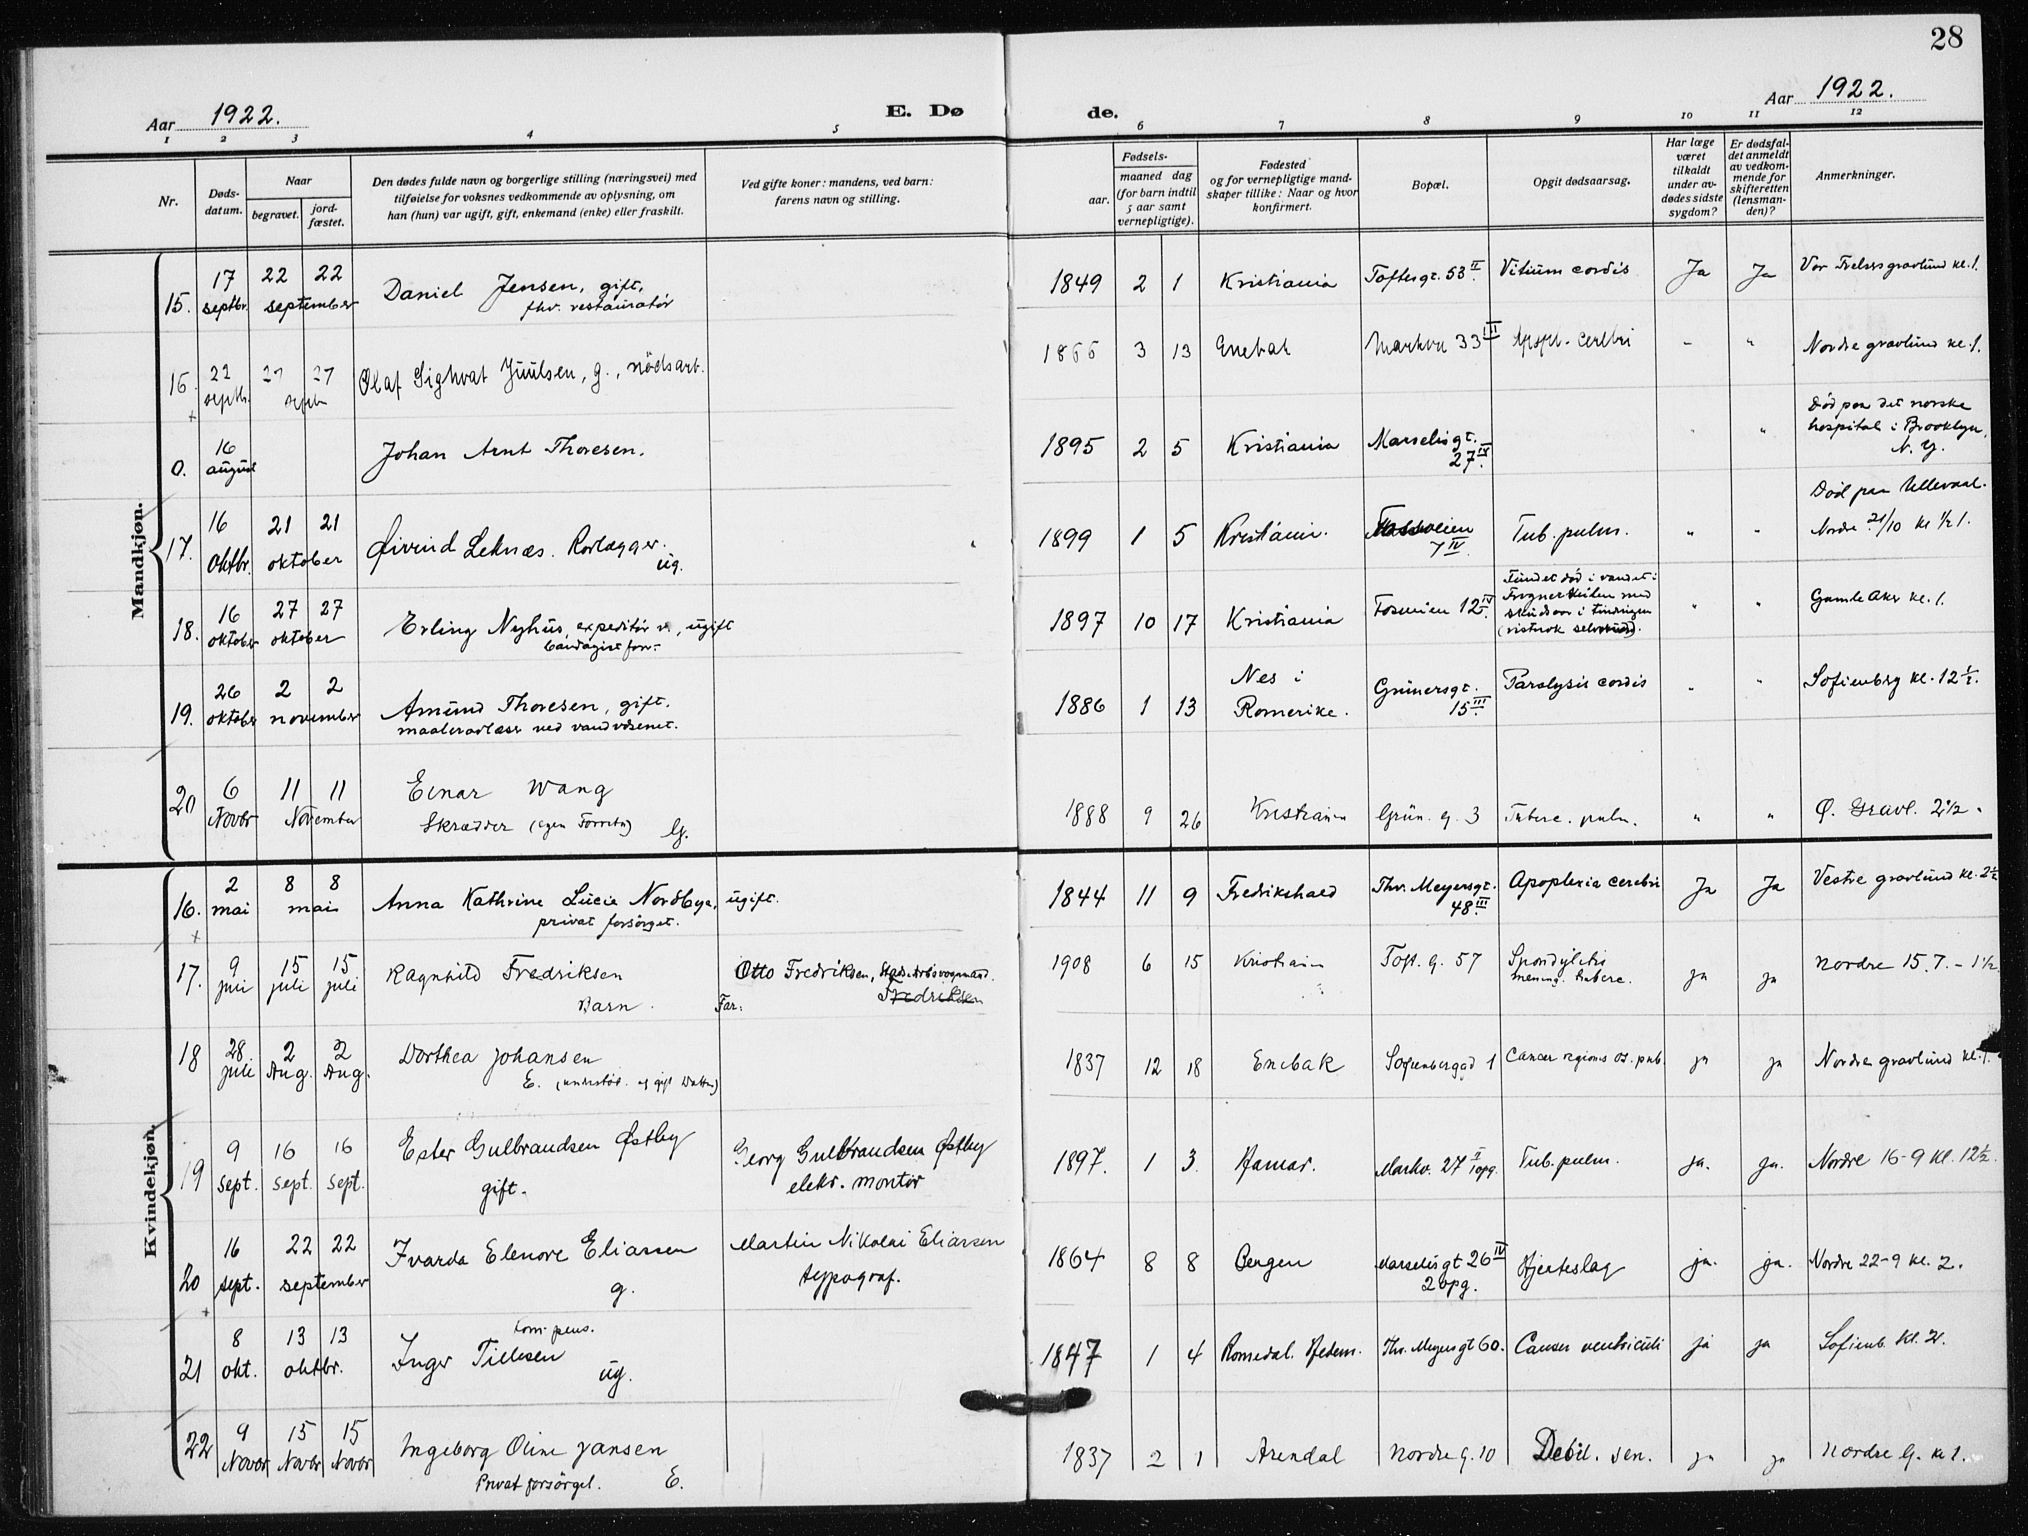 28
Aar 1922.
E. Dø
de.
Aar 1922.
1 2 3 4 5 6 7 8 9 10 11 12
Nr.
Døds-
datum.
Naar
begravet.
jord-
fæstet.
Den dødes fulde navn og borgerlige stilling (næringsvei) med
tilføielse for voksnes vedkommende av oplysning, om
han (hun) var ugift, gift, enkemand (enke) eller fraskilt.
Ved gifte koner: mandens, ved barn:
farens navn og stilling.
Fødsels-
aar.
maaned dag
(for barn indtil
5 aar samt
vernepligtige).
Fødested
og for vernepligtige mand-
skaper tillike: Naar og hvor
konfirmert.
Bopæl.
Opgit dødsaarsag.
Har læge
været
tilkaldt
under av-
dødes sidste
sygdom?
Er dødsfal-
det anmeldt
av vedkom-
mende for
skifteretten
(lensman-
den)?
Anmerkninger.
Mandkjøn.
15. 17 septbr. 22 22 september Daniel Jensen, gift, fhv. restauratør 1849 2 1 Kristiania Toftesgt. 53 II Vitium cordis Ja Ja Vor Frelsers gravlund kl. 1.
16. 22 septbr. 27 27 septbr Olaf Sighvat Juulsen, g., nödsarb. 1866 3 13 Enebak Markvei 33 III Apopl. cerebri - " Nordre gravlund kl. 1.
0. 16 august Johan Arnt Thoresen. 1895 2 5 Kristiania Marselisgt. 27 IV. " " Död paa det norske hospital i Brooklyn, N.Y.
17. 16 Oktbr. 21 21 oktober Øivind Leknæs. Rørlægger. ug. 1899 1 5 Kristiania. 7 IV Tub. pulm. " " Död paa Ullevaal. Nordre 21/10 kl ½ 1.
18. 16 oktober 27 27 oktober Erling Nyhus, expeditör v., ugift bandagist forr. 1897 10 17 Kristiania Fosveien 12 IV. Fundet död i vandet i Frognerkilen med skudsaar i tindingen (vistnok selvmord). " " Gamle Aker kl. 1.
19. 26 oktober 2 2 november Amund Thoresen, gift. maaleravlæser ved vandvæsenet. 1886 1 13 Nes i Romerike. Grünersgt. 15 III. Paralysis cordis " " Sofienberg kl. 12 ½.
20 6 Novbr 11 11 November Einar Wang Skrædder (egen Forretn) G. 1888 9 26 Kristiania Grün. g. 3 Tuberc. pulm. " " Ø. Gravl. 2 ½.
Kvindekjøn.
16. 2 mai 8 8 mai Anna Kathrine Lucie Nordbye, ugift. privat forsørget. 1844 11 9 Fredrikshald Thv. Meyersgt. 48 III. Apoplexia cerebri Ja Ja Vestre gravlund kl. 2 ½
17. 9 juli 15 juli 15 juli Ragnhild Fredriksen Barn. Far: Otto Fredriksen, Fredriksen 1908 6 15 Kristiania Toft. g. 57 Spondylitis mening. tuberc. ja ja Nordre 15.7. - 1 ½
18 28. juli 2 Aug. 2 Aug. Dorthea Johansen E. 1837 12 18 Enebak Sofienberggd 1 Cancer regionis os. pub. ja ja Nordre gravlund kl. 1.
19 9 sept. 16 sept. 16 sept. Ester Gulbrandsen Østby gift. Georg Gulbrandsen Østby elekr. montør 1897. 1 3. Hamar. Markv. 27 II opg. Tub. pulm. ja. ja. Nordre 16-9 kl. 12 ½.
20 16 sept. 22 22 september Ivarda Elenore Eliassen g. Martin Nikolai Eliassen typograf. 1864 8 8 Bergen Marselisgt 26 IV 2 opg. Hjerteslag ja. ja. Nordre 22-9 kl. 2.
21 8 okt. 13 13 oktbr. Kom. pens. Inger Tillesen ug. 1847 1 4 Romedal. Hedem. Thv. Meyersgt 60. Cancer ventriculi ja ja Sofienb. kl. 2.
22 9 Novbr 15 Novbr 15 Novbr Ingeborg Oline Jansen Privat forsørget. E. 1837 2 1 Arendal Nordre g. 10 Debil. sen. ja ja Nordre G. kl 1.